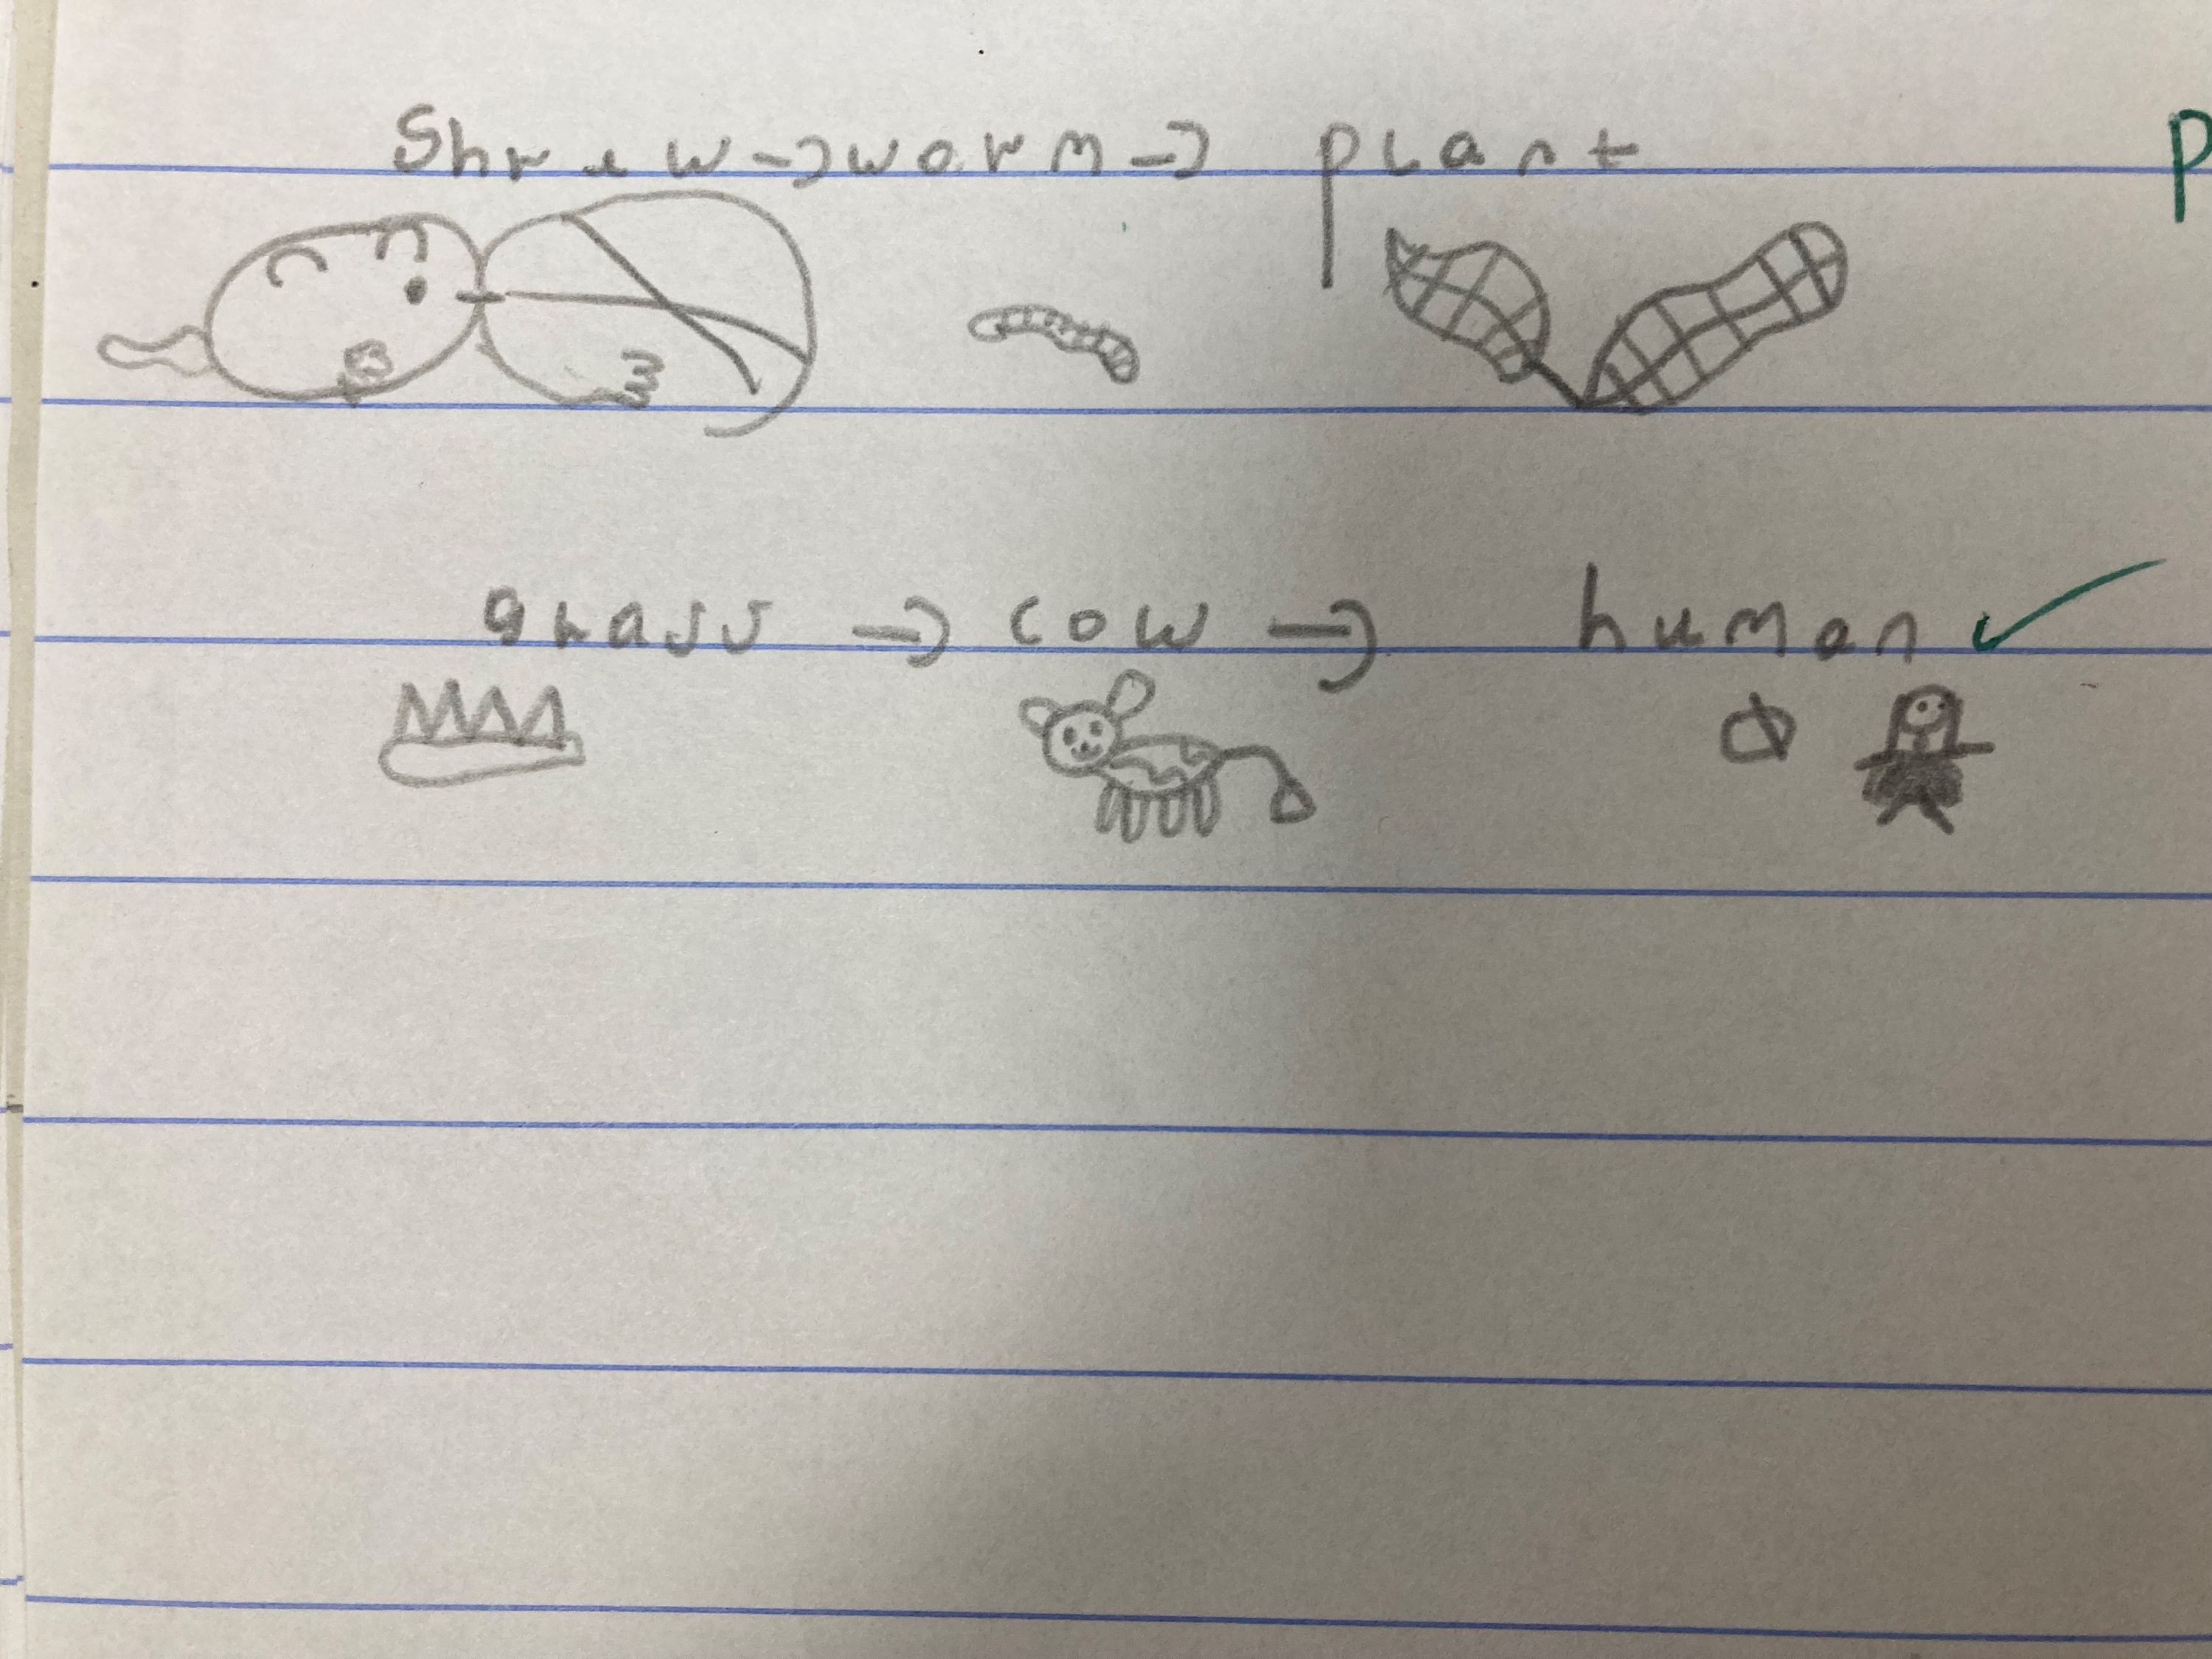 Shrew → worm → plant P
grass → cow → human ✓